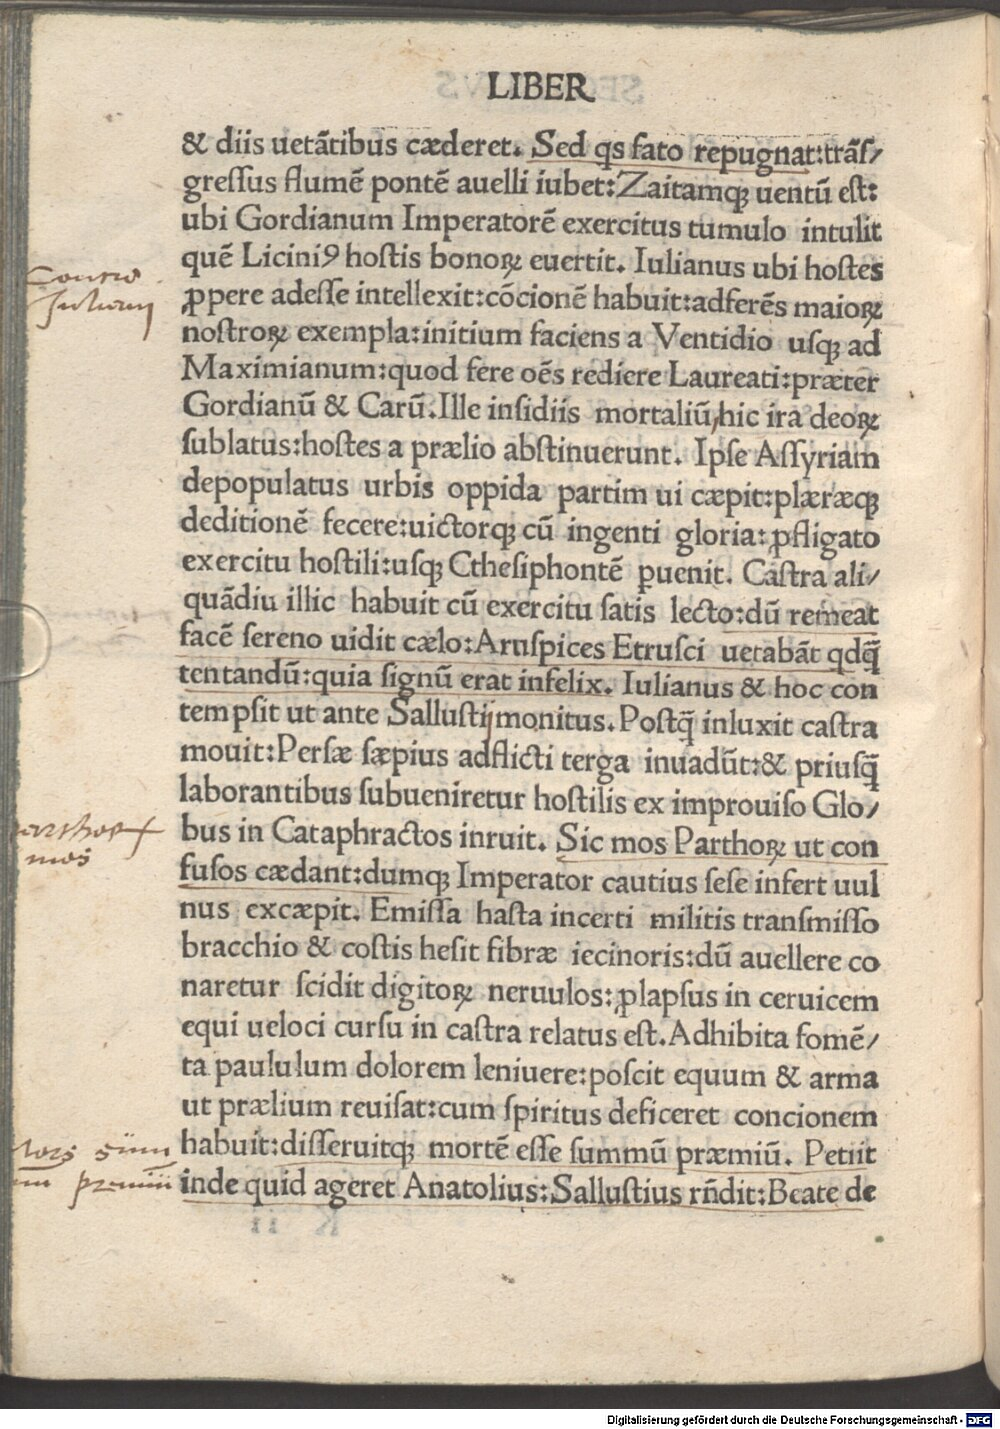 LIBER
& diis uetãtibus cæderet. Sed qs fato repugnat:trãſ/
greſſus flumẽ pontẽ auelli iubet:Zaitamqꝫ uentũ eſt:
ubi Gordianum Imperatorẽ exercitus tumulo intulit
quẽ Liciniꝰ hoſtis bonoꝝ euertit. Iulianus ubi hoſtes
Contio
Iuliani
ꝓpere adeſſe intellexit:cõcionẽ habuit:adferẽs maioꝝ
noſtroꝝ exempla:initium faciens a Ventidio uſqꝫ ad
Maximianum:quod fere oẽs rediere Laureati:præter
Gordianũ & Carũ.Ille inſidiis mortaliũ,hic ira deoꝝ
ſublatus:hoſtes a prælio abſtinuerunt. Ipſe Aſſyriam
depopulatus urbis oppida partim ui cæpit:plæræqꝫ
deditionẽ fecere:uictorqꝫ cũ ingenti gloria:ꝓfligato
exercitu hoſtili:uſqꝫ Ctheſiphontẽ ꝑuenit. Caſtra ali/
quãdiu illic habuit cũ exercitu ſatis lecto:dũ remeat
facẽ ſereno uidit cælo:Aruſpices Etruſci uetabãt qdq̃
tentandũ:quia ſignũ erat infelix. Iulianus & hoc con
tempſit ut ante Salluſtij monitus. Poſtq̃ inluxit caſtra
mouit:Perſæ ſæpius adflicti terga inuadũt:& priuſq̃
laborantibus ſubueniretur hoſtilis ex improuiſo Glo/
bus in Cataphractos inruit. Sic mos Parthoꝝ ut con
mos
fuſos cædant:dumqꝫ Imperator cautius ſeſe infert uul
nus excæpit. Emiſſa haſta incerti militis tranſmiſſo
bracchio & coſtis heſit fibræ iecinoris:dũ auellere co
naretur ſcidit digitoꝝ neruulos:ꝓlapſus in ceruicem
equi ueloci curſu in caſtra relatus eſt.Adhibita fomẽ/
ta paululum dolorem leniuere:poſcit equum & arma
ut prælium reuiſat:cum ſpiritus deficeret concionem
habuit:diſſeruitqꝫ mortẽ eſſe ſummũ præmiũ. Petiit
inde quid ageret Anatolius:Salluſtius rñdit:Beate de
Digitalisierung gefördert durch die Deutsche Forschungsgemeinschaft - DFG